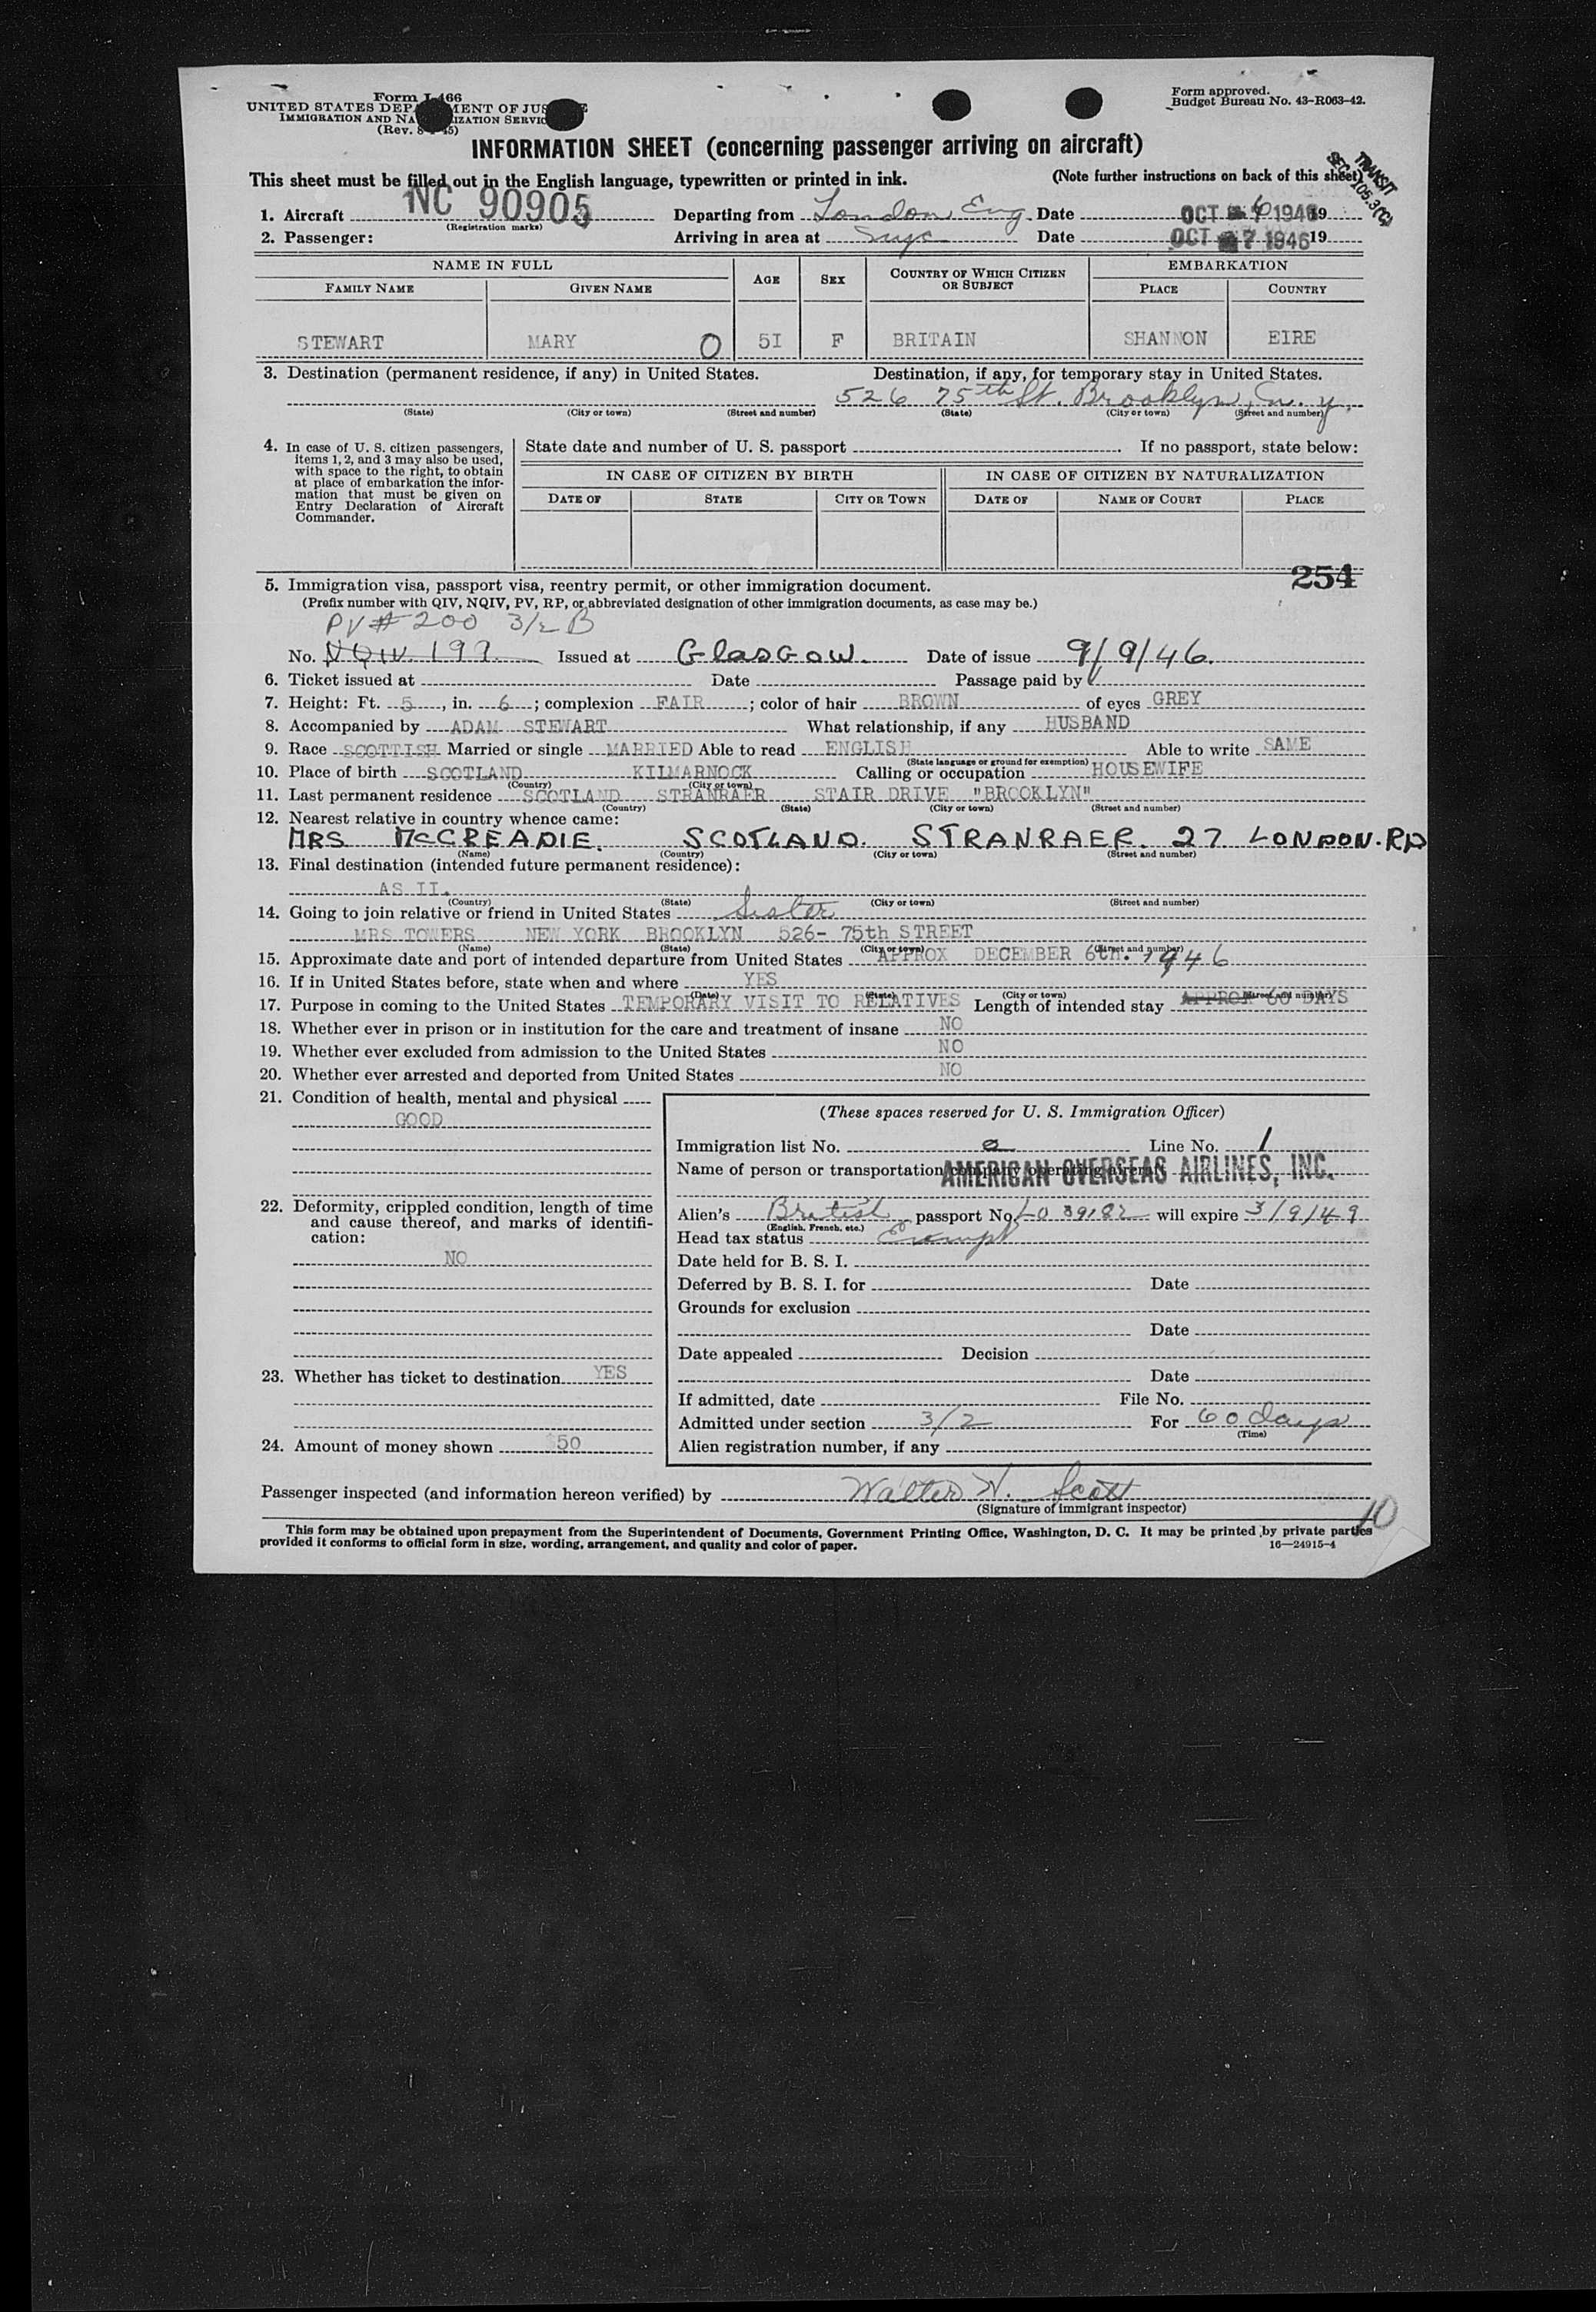 Form I-466
UNITED STATES DEPARTMENT OF JUSTICE
IMMIGRATION AND NATURALIZATION SERVICE
(Rev. 45)
Form approved.
Budget Bureau No. 43-R063-42.
INFORMATION SHEET (concerning passenger arriving on aircraft)
TRANSIT
SEC. 105.3(C)
This sheet must be filled out in the English language, typewritten or printed in ink. (Note further instructions on back of this sheet)
1. Aircraft NC 90905 Departing from London, Eng. Date OCT 6 1946 19
(Registration marks)
2. Passenger: Arriving in area at nyc Date OCT 7 1946 19
NAME IN FULL AGE SEX COUNTRY OF WHICH CITIZEN OR SUBJECT EMBARKATION
FAMILY NAME GIVEN NAME PLACE COUNTRY
STEWART MARY O 5I F BRITAIN SHANNON EIRE
3. Destination (permanent residence, if any) in United States. Destination, if any, for temporary stay in United States.
526 75th St. Brooklyn, n. y.
(State) (City or town) (Street and number) (State) (City or town) (Street and number)
4. In case of U. S. citizen passengers, items 1, 2, and 3 may also be used, with space to the right, to obtain at place of embarkation the information that must be given on Entry Declaration of Aircraft Commander.
State date and number of U. S. passport . If no passport, state below:
IN CASE OF CITIZEN BY BIRTH IN CASE OF CITIZEN BY NATURALIZATION
DATE OF STATE CITY OR TOWN DATE OF NAME OF COURT PLACE
254
5. Immigration visa, passport visa, reentry permit, or other immigration document.
(Prefix number with QIV, NQIV, PV, RP, or abbreviated designation of other immigration documents, as case may be.)
PV # 200 3/2 B
No. NQIV. 199. Issued at GLASGOW. Date of issue 9/9/46.
6. Ticket issued at Date Passage paid by
7. Height: Ft. 5, in. 6; complexion FAIR; color of hair BROWN of eyes GREY
8. Accompanied by ADAM STEWART What relationship, if any HUSBAND
9. Race SCOTTISH Married or single MARRIED Able to read ENGLISH Able to write SAME
(State language or ground for exemption)
10. Place of birth SCOTLAND KILMARNOCK Calling or occupation HOUSEWIFE
(Country) (City or town)
11. Last permanent residence SCOTLAND STRANRAER STAIR DRIVE "BROOKLYN"
(Country) (State) (City or town) (Street and number)
12. Nearest relative in country whence came:
MRS McCREADIE. SCOTLAND. STRANRAER. 27 LONDON.RD
(Name) (Country) (City or town) (Street and number)
13. Final destination (intended future permanent residence):
AS II.
(Country) (State) (City or town) (Street and number)
14. Going to join relative or friend in United States Sister
MRS TOWERS NEW YORK BROOKLYN 526- 75th STREET
(Name) (State) (City or town) (Street and number)
15. Approximate date and port of intended departure from United States APPROX DECEMBER 6th. 1946
16. If in United States before, state when and where YES
(Date) (State) (City or town) (Street and number)
17. Purpose in coming to the United States TEMPORARY VISIT TO RELATIVES Length of intended stay APPROX 60 DAYS
18. Whether ever in prison or in institution for the care and treatment of insane NO
19. Whether ever excluded from admission to the United States NO
20. Whether ever arrested and deported from United States NO
21. Condition of health, mental and physical
GOOD
22. Deformity, crippled condition, length of time and cause thereof, and marks of identification:
NO
23. Whether has ticket to destination YES
24. Amount of money shown $50
(These spaces reserved for U. S. Immigration Officer)
Immigration list No. Line No. 1
Name of person or transportation company operating aircraft AMERICAN OVERSEAS AIRLINES, INC.
Alien's British passport No. LO 39182 will expire 3/9/49
(English, French, etc.)
Head tax status Exempt
Date held for B. S. I.
Deferred by B. S. I. for Date
Grounds for exclusion
Date
Date appealed Decision
Date
If admitted, date File No.
Admitted under section 3/2 For 60 days
(Time)
Alien registration number, if any
Passenger inspected (and information hereon verified) by Walter W. Scott
(Signature of immigrant inspector)
10
This form may be obtained upon prepayment from the Superintendent of Documents, Government Printing Office, Washington, D. C. It may be printed by private parties
provided it conforms to official form in size, wording, arrangement, and quality and color of paper. 16—24915-4